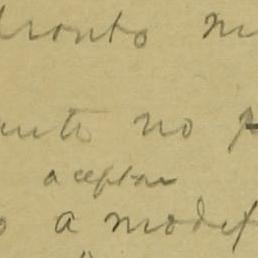 pronto m
ente no p
aceptar
o a modif